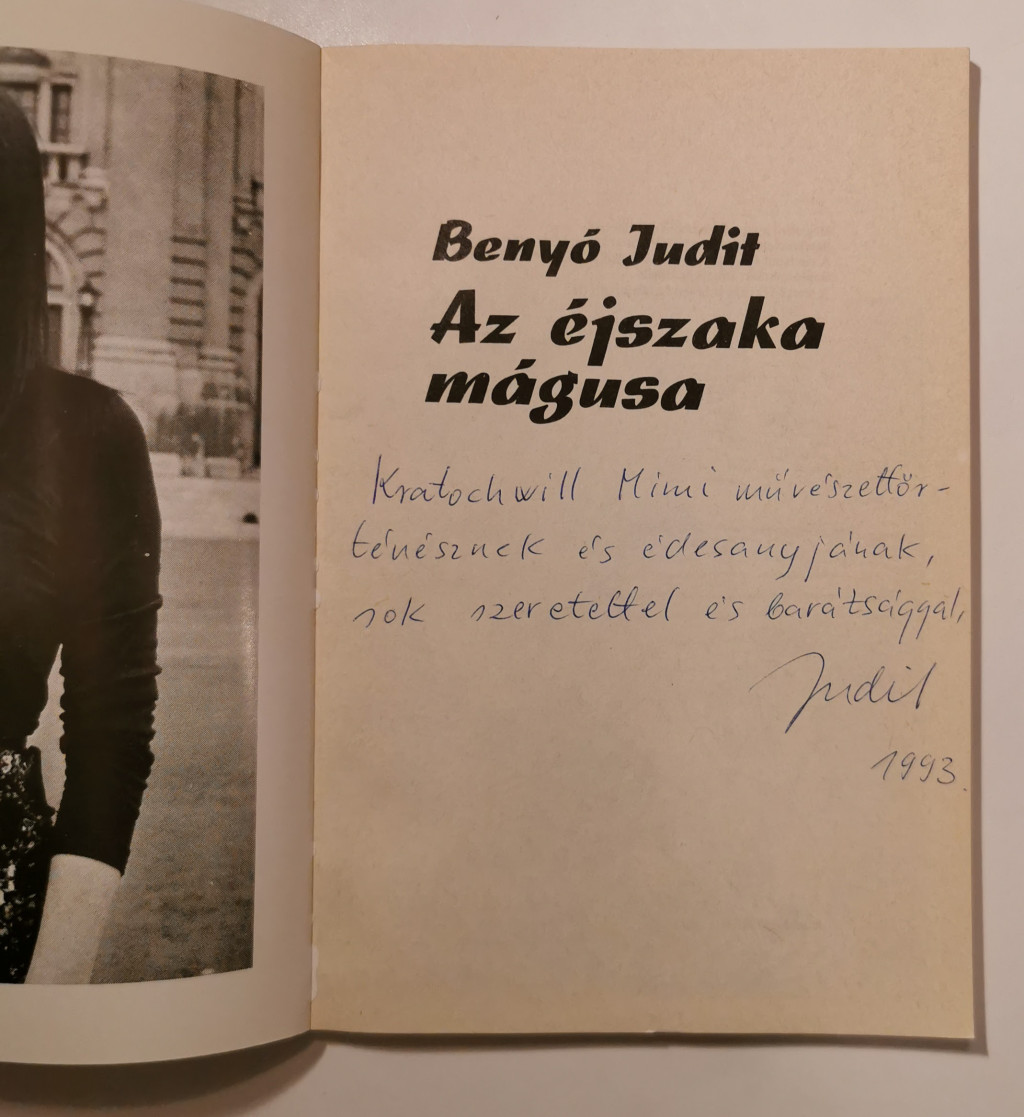 Benyó Judit
Az éjszaka
mágusa
Kratochwill Mimi művészettör-
ténésznek és édesanyjának,
sok szeretettel és barátsággal,
Judit
1993.